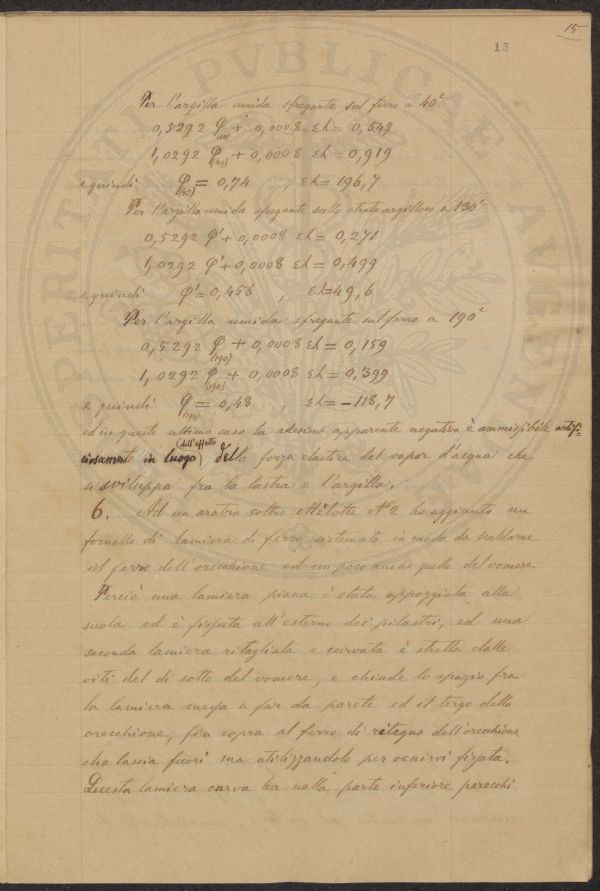 15
15
PERITATI PVBLICAE AVGEN
Per l'argilla umida sfregante sul ferro a 40°
0,5292 φ(40) + 0,0008 εh = 0,542
1,0292 φ(40) + 0,0008 εh = 0,919
e quindi φ(40) = 0,74 , εh = 196,7
Per l'argilla umida sfregante sullo strato argilloso a 130°
0,5292 φ' + 0,0008 εh = 0,271
1,0292 φ' + 0,0008 εh = 0,499
e quindi φ' = 0,456 , εh = 49,6
Per l'argilla umida sfregante sul ferro a 190°
0,5292 φ(190) + 0,0008 εh = 0,159
1,0292 φ(190) + 0,0008 εh = 0,399
e quindi φ(190) = 0,48 , εh = −118,7
ed in questo ultimo caso la adesione apparente negativa è ammissibile artifi-
(dell'effetto
ciosament in luogo) della forza elastica del vapor d'acqua che
si sviluppa fra la lastra e l'argilla.
6. Ad un aratro coltro Mélotte N° 2 ho aggiunto un
fornello di lamiera di ferro sistemato in modo da scaldarne
il ferro dell'orecchione ed un poco anche quello del vomere.
Perciò una lamiera piana è stata appoggiata alla
suola ed è fissata all'esterno dei pilastri, ed una
seconda lamiera ritagliata e curvata è stretta dalle
viti del di sotto del vomere, e chiude lo spazio fra
la lamiera messa a far da parete ed il tergo dello
orecchione, fin sopra al ferro di ritegno dell'orecchione
che lascia fuori ma utilizzandolo per venirvi fissata.
Questa lamiera curva ha nella parte inferiore parecchi